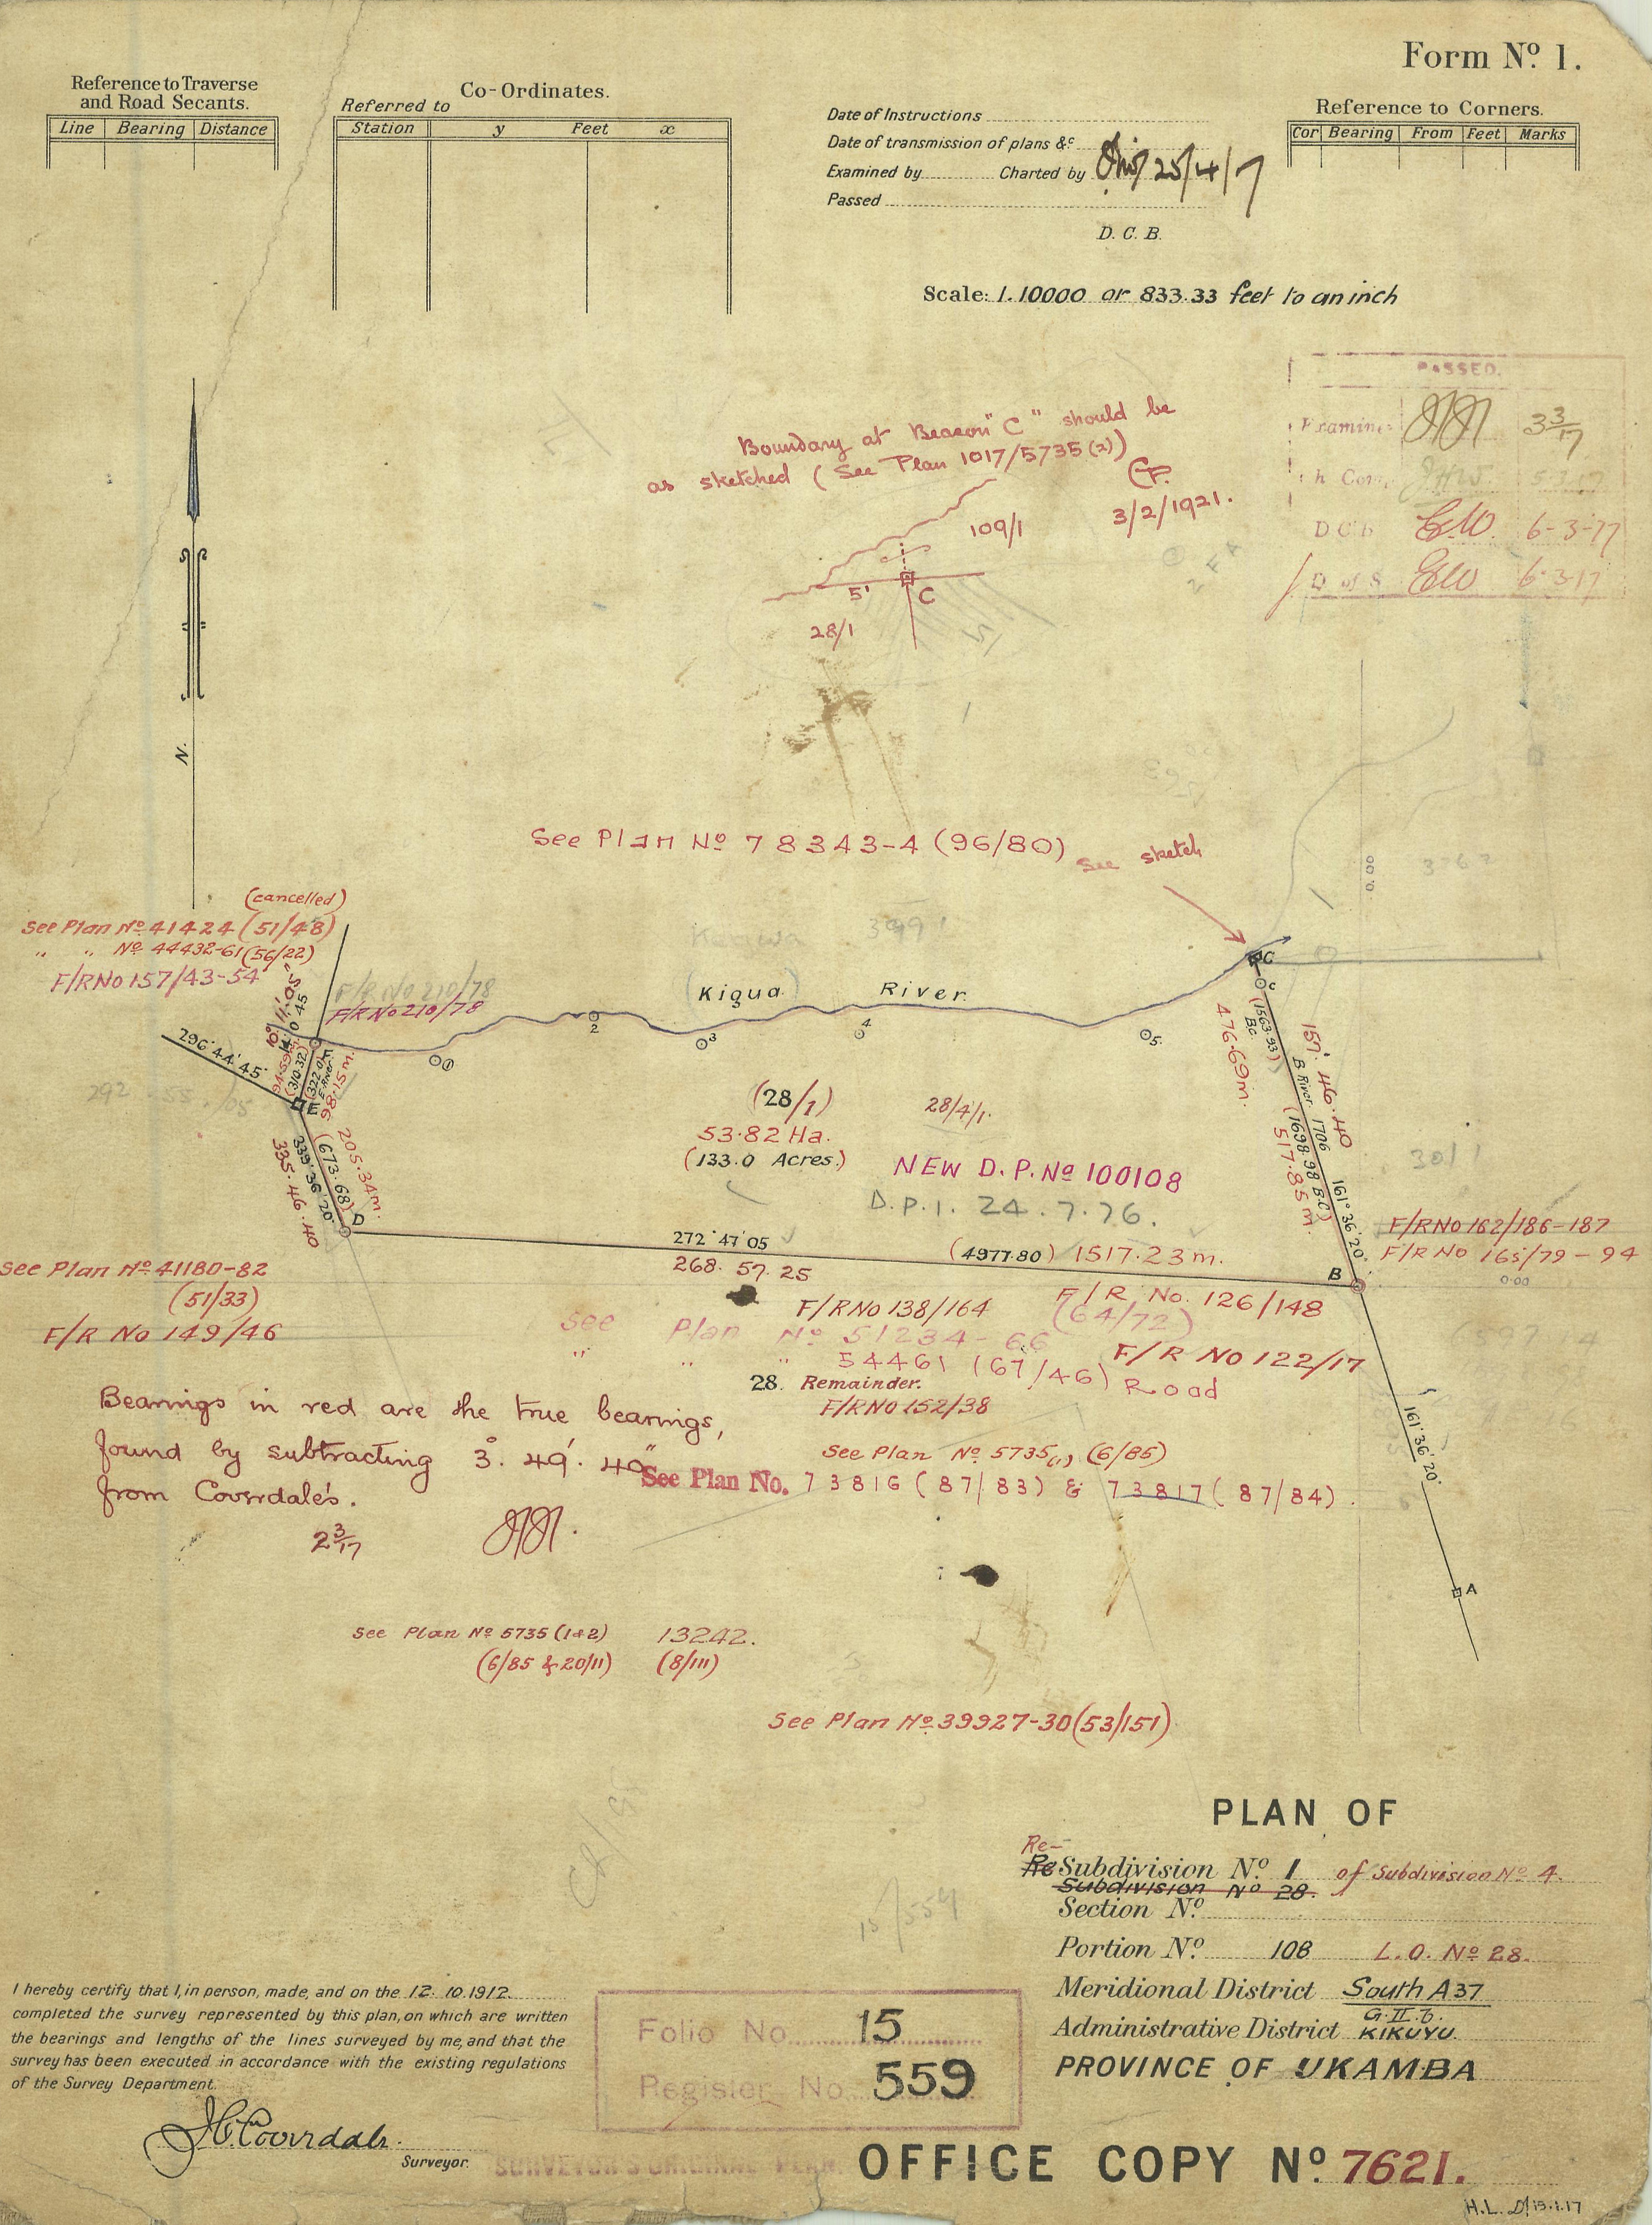 Form Nº 1.
Reference to Traverse
and Road Secants.
Line Bearing Distance
Co-Ordinates.
Referred to
Station y Feet x
Date of Instructions
Date of transmission of plans &c
Examined by Charted by 25/4/17
Passed
D. C. B.
Reference to Corners.
Cor Bearing From Feet Marks
Scale: 1.10000 or 833.33 feet to an inch
PASSED.
3 3/17
5.3.17
D C B EW. 6-3-17
D of S EW 6.3.17
Boundary at Beacon "C" should be
as sketched (See Plan 1017/5735(2))
3/2/1921.
109/1
5' C
28/1
N.
See Plan Nº 78343-4 (96/80)
See sketch
0.00
(cancelled)
See Plan Nº 41424 (51/48)
" " Nº 44432-61 (56/22)
F/R No 157/43-54
F/R No 210/78
F/R No 210/78
Kigua River
C
c
1
2
3
4
5
296°44'45"
292 . 55 . 05
10° 11' 05"
14 0 45
94.59m.
(310.32)
(322.0)
E. River
98.15m.
F
E
205.34m.
(673.68)
339°36'20"
335.46.40
D
(28/1)
53.82 Ha.
(133.0 Acres.)
28/4/1.
NEW D.P. Nº 100108
D.P.1. 24.7.76.
476.69m.
(1563.93)
B.c.
157. 46. 40
B River 1706
(1698.98 B.C)
517.85m.
161°36'20"
301
272°47'05
268. 57. 25
(4977.80) 1517.23m.
B
F/R No 162/186-187
F/R No 165/79-94
0.00
See Plan Nº 41180-82
(51/33)
F/R No 149/46
F/R No 138/164
F/R No. 126/148
(64/72)
See Plan Nº 51234-66
" " " 54461 (67/46) Road
F/R No 122/17
28. Remainder.
F/R No 152/38
See Plan Nº 5735(1) (6/85)
See Plan No. 73816 (87/83) & 73817 (87/84).
Bearings in red are the true bearings,
found by subtracting 3°. 49'. 40"
from Coverdale's.
2 3/17
161°36'20"
A
See Plan Nº 5735 (1&2) 13242.
(6/85 & 20/11) (8/111)
See Plan Nº 39927-30 (53/151)
15/559
PLAN OF
Re-
Re Subdivision Nº 1 of Subdivision Nº 4.
Subdivision Nº 28.
Section Nº
Portion Nº 108 L.O. Nº 28.
Meridional District South A37
G.II.b.
Administrative District KIKUYU.
PROVINCE OF UKAMBA
I hereby certify that I, in person, made, and on the 12. 10. 1912
completed the survey represented by this plan, on which are written
the bearings and lengths of the lines surveyed by me, and that the
survey has been executed in accordance with the existing regulations
of the Survey Department.
Coverdale.
Surveyor.
Folio No. 15
Register No. 559
SURVEYOR'S ORIGINAL PLAN.
OFFICE COPY Nº 7621.
H.L. 13.1.17